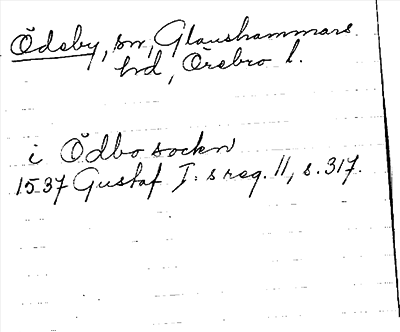 Ödeby, sn, Glanshammars
hd, Örebro l.
i Ödbo sockn
1537 Gustaf I:s reg. 11, s. 317.